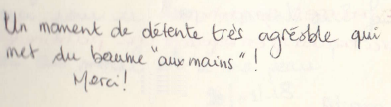 Un moment de détente très agréable qui
met du baume "aux mains" !
Merci !